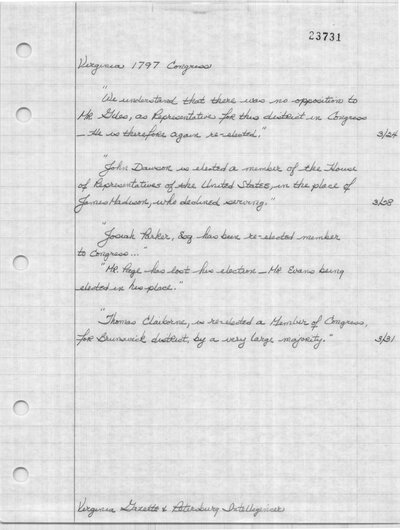 23731
Virginia 1797 Congress
"We understand that there was no opposition to
Mr. Giles, as Representative for this district in Congress
— He is therefore again re-elected." 3/24
"John Dawson is elected a member of the House
of Representatives of the United States, in the place of
James Madison, who declined serving." 3/28
"Josiah Parker, Esq has been re-elected member
to Congress..."
"Mr. Page has lost his election — Mr. Evans being
elected in his place."
"Thomas Claiborne, is re-elected a Member of Congress,
for Brunswick district, by a very large majority." 3/31
Virginia Gazette & Petersburg Intelligencer